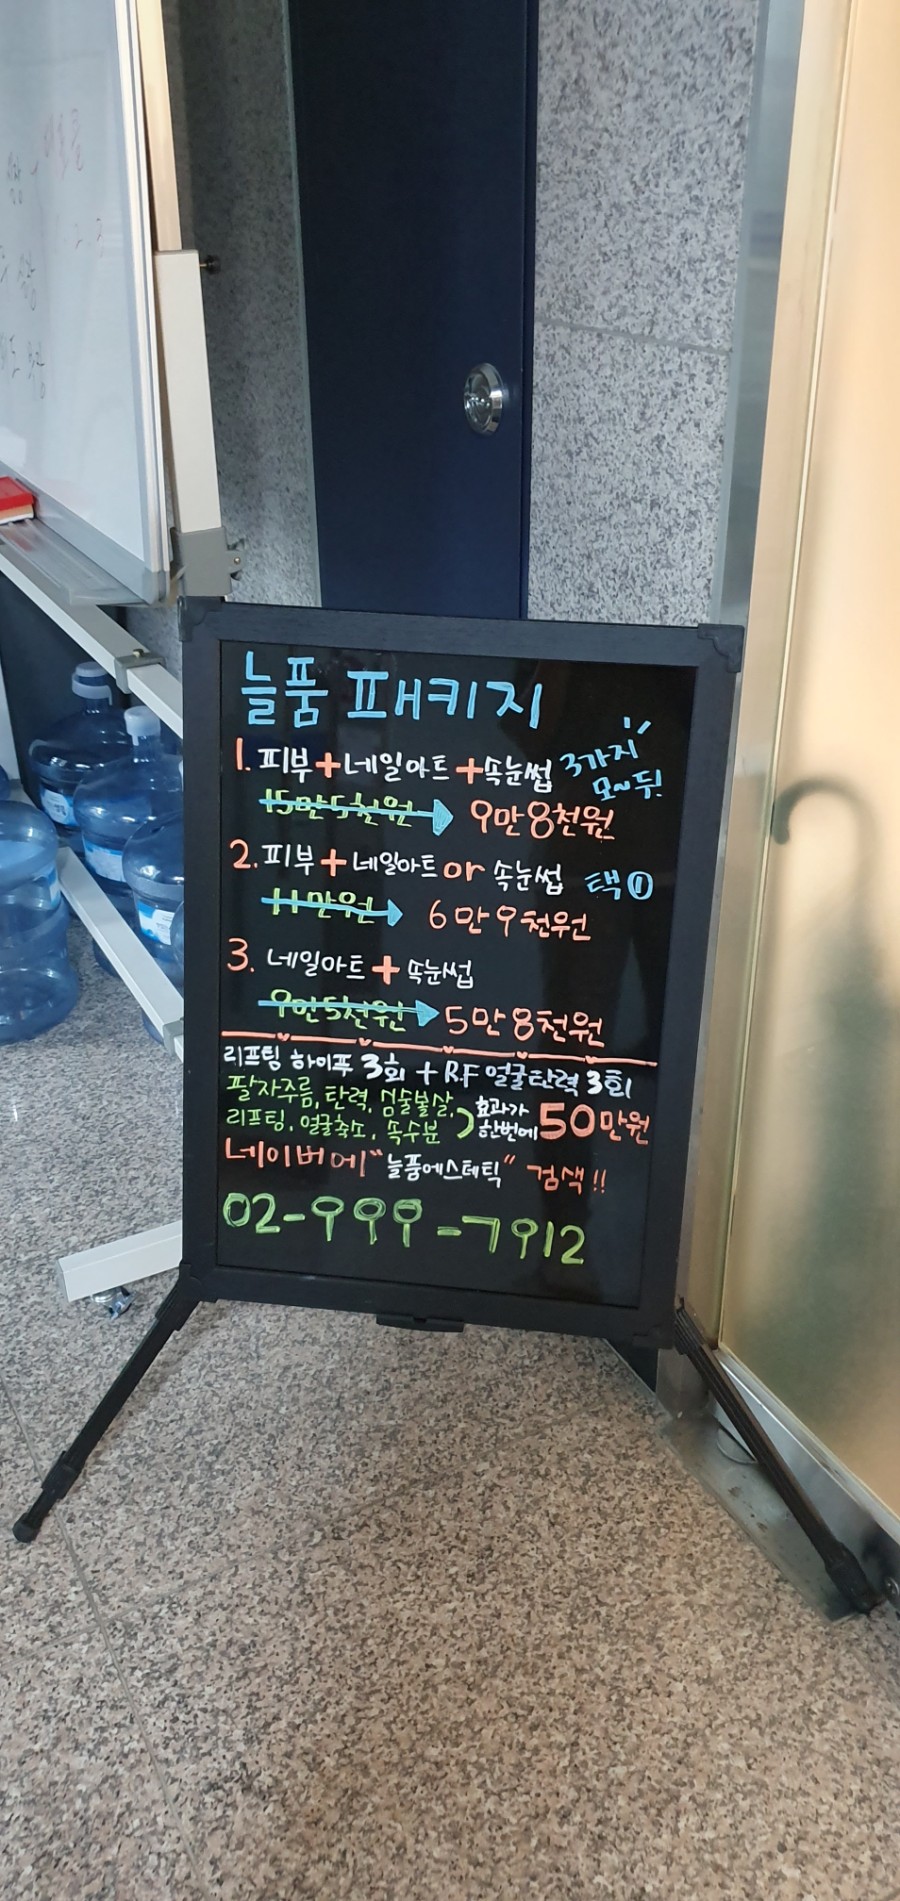 늘품 패키지
1. 피부+네일아트+속눈썹 3가지 모~두!
15만5천원 → 9만8천원
2. 피부+네일아트 or 속눈썹 택①
11만원 → 6만9천원
3. 네일아트+속눈썹
9만5천원 → 5만8천원
리프팅 하이푸 3회 + R.F 얼굴탄력 3회
팔자주름, 탄력, 심술볼살,
리프팅, 얼굴축소, 속수분
효과가 한번에 50만원
네이버에 "늘품에스테틱" 검색!!
02-999-7912